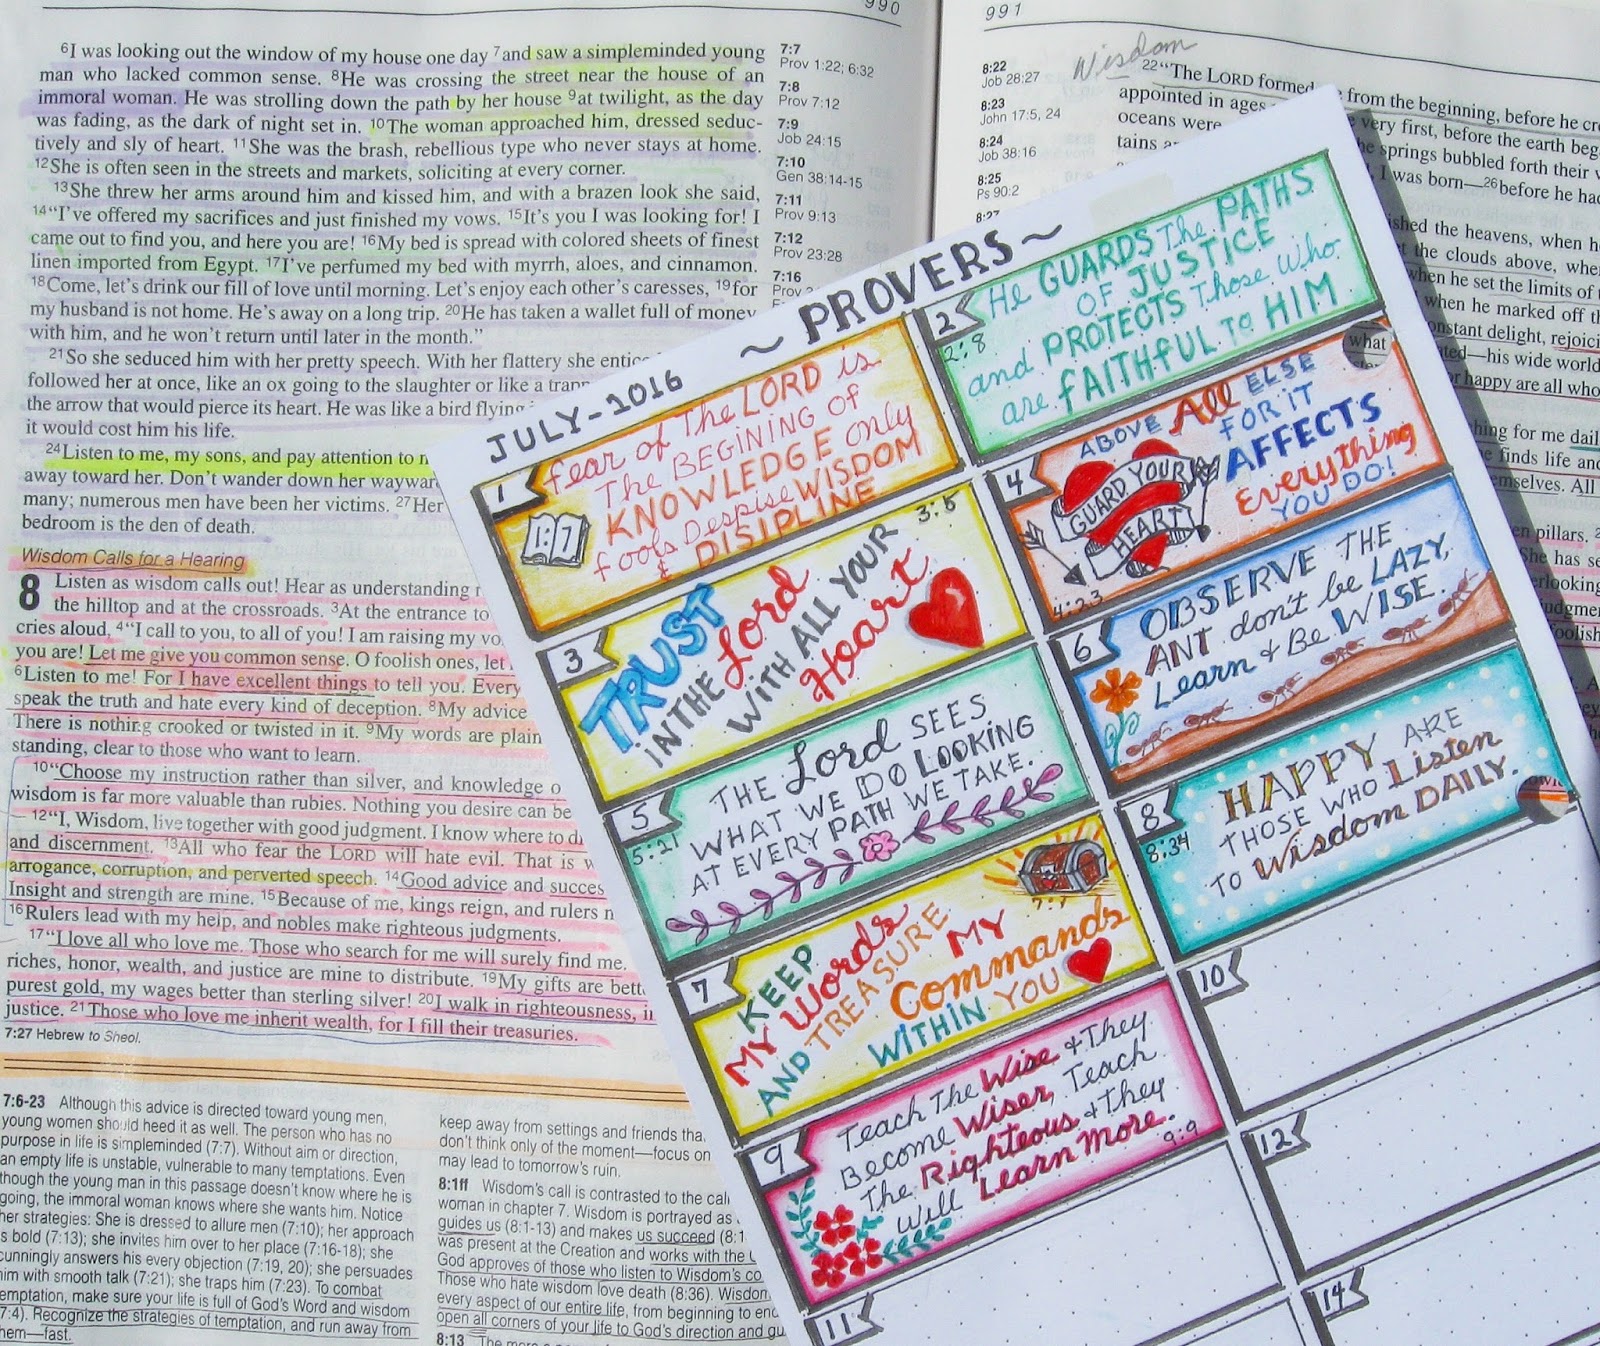 990
6I was looking out the window of my house one day 7and saw a simpleminded young
man who lacked common sense. 8He was crossing the street near the house of an
immoral woman. He was strolling down the path by her house 9at twilight, as the day
was fading, as the dark of night set in. 10The woman approached him, dressed seduc-
tively and sly of heart. 11She was the brash, rebellious type who never stays at home.
12She is often seen in the streets and markets, soliciting at every corner.
13She threw her arms around him and kissed him, and with a brazen look she said,
14"I've offered my sacrifices and just finished my vows. 15It's you I was looking for! I
came out to find you, and here you are! 16My bed is spread with colored sheets of finest
linen imported from Egypt. 17I've perfumed my bed with myrrh, aloes, and cinnamon.
18Come, let's drink our fill of love until morning. Let's enjoy each other's caresses, 19for
my husband is not home. He's away on a long trip. 20He has taken a wallet full of money
with him, and he won't return until later in the month."
21So she seduced him with her pretty speech. With her flattery she
followed her at once, like an ox going to the slaughter or like a
the arrow that would pierce its heart. He was like a bird flying
it would cost him his life.
24Listen to me, my sons, and pay attention to
away toward her. Don't wander down her wayward
many; numerous men have been her victims. 27Her
bedroom is the den of death.
Wisdom Calls for a Hearing
8 Listen as wisdom calls out! Hear as understanding
the hilltop and at the crossroads. 3At the entrance to
cries aloud, 4"I call to you, to all of you! I am raising my
you are! Let me give you common sense. O foolish ones, let
6Listen to me! For I have excellent things to tell you. Every
speak the truth and hate every kind of deception. 8My advice
There is nothing crooked or twisted in it. 9My words are plain
standing, clear to those who want to learn.
10"Choose my instruction rather than silver, and knowledge
wisdom is far more valuable than rubies. Nothing you desire can be
12"I, Wisdom, live together with good judgment. I know where to
and discernment. 13All who fear the LORD will hate evil. That is
arrogance, corruption, and perverted speech. 14Good advice and
Insight and strength are mine. 15Because of me, kings reign, and rulers
16Rulers lead with my help, and nobles make righteous judgments.
17"I love all who love me. Those who search for me will surely find me.
riches, honor, wealth, and justice are mine to distribute. 19My gifts are
purest gold, my wages better than sterling silver! 20I walk in righteousness,
justice. 21Those who love me inherit wealth, for I fill their treasuries.
7:27 Hebrew to Sheol.
7:6-23 Although this advice is directed toward young men,
young women should heed it as well. The person who has no
purpose in life is simpleminded (7:7). Without aim or direction,
an empty life is unstable, vulnerable to many temptations. Even
though the young man in this passage doesn't know where he is
going, the immoral woman knows where she wants him. Notice
her strategies: She is dressed to allure men (7:10); her approach
is bold (7:13); she invites him over to her place (7:16-18); she
cunningly answers his every objection (7:19, 20); she persuades
him with smooth talk (7:21); she traps him (7:23). To combat
temptation, make sure your life is full of God's Word and wisdom
7:4). Recognize the strategies of temptation, and run away from
them—fast.
keep away from settings and friends
don't think only of the moment—focus on
may lead to tomorrow's ruin.
8:1ff Wisdom's call is contrasted to the
woman in chapter 7. Wisdom is portrayed as
guides us (8:1-13) and makes us succeed
was present at the Creation and works with the
God approves of those who listen to Wisdom's
Those who hate wisdom love death (8:36). Wisdom
every aspect of our entire life, from beginning to end
open all corners of your life to God's direction and
8:13
7:7
Prov 1:22; 6:32
7:8
Prov 7:12
7:9
Job 24:15
7:10
Gen 38:14-15
7:11
Prov 9:13
7:12
Prov 23:28
7:16
Prov
991
8:22
Job 28:27
8:23
John 17:5, 24
8:24
Job 38:16
8:25
Ps 90:2
8:27
Wisdom
22"The LORD formed from the beginning, before he
appointed in ages very first, before the earth
oceans were springs bubbled forth their
I was born—26before he had
the heavens, when
the clouds above,
when he set the limits of
when he marked off
constant delight,
his wide world
happy are all who
for me
finds life and
All
pillars.
JULY-2016
~ PROVERS ~
1
1:7
fear of The LORD is
The BEGINING OF
KNOWLEDGE Only
fools Despise WISDOM
& DISIPLINE
2
2:8
He GUARDS The PATHS
OF JUSTICE
and PROTECTS Those Who
are FAITHFUL TO HIM
3
3:5
TRUST
IN THE Lord
WITH ALL YOUR
Heart
4
4:23
ABOVE All ELSE
GUARD YOUR
HEART
FOR IT
AFFECTS
Everything
YOU DO!
what
5
5:21
THE Lord SEES
WHAT WE DO LOOKING
AT EVERY PATH WE TAKE.
6
OBSERVE THE
ANT don't be LAZY,
Learn & Be WISE.
7
KEEP
MY Words
AND TREASURE
MY
Commands
WITHIN YOU
8
8:34
HAPPY ARE
THOSE WHO Listen
TO Wisdom DAILY.
9
9:9
Teach The Wise & They
Become Wiser, Teach
The Righteous & They
Will Learn More.
10
11
12
14